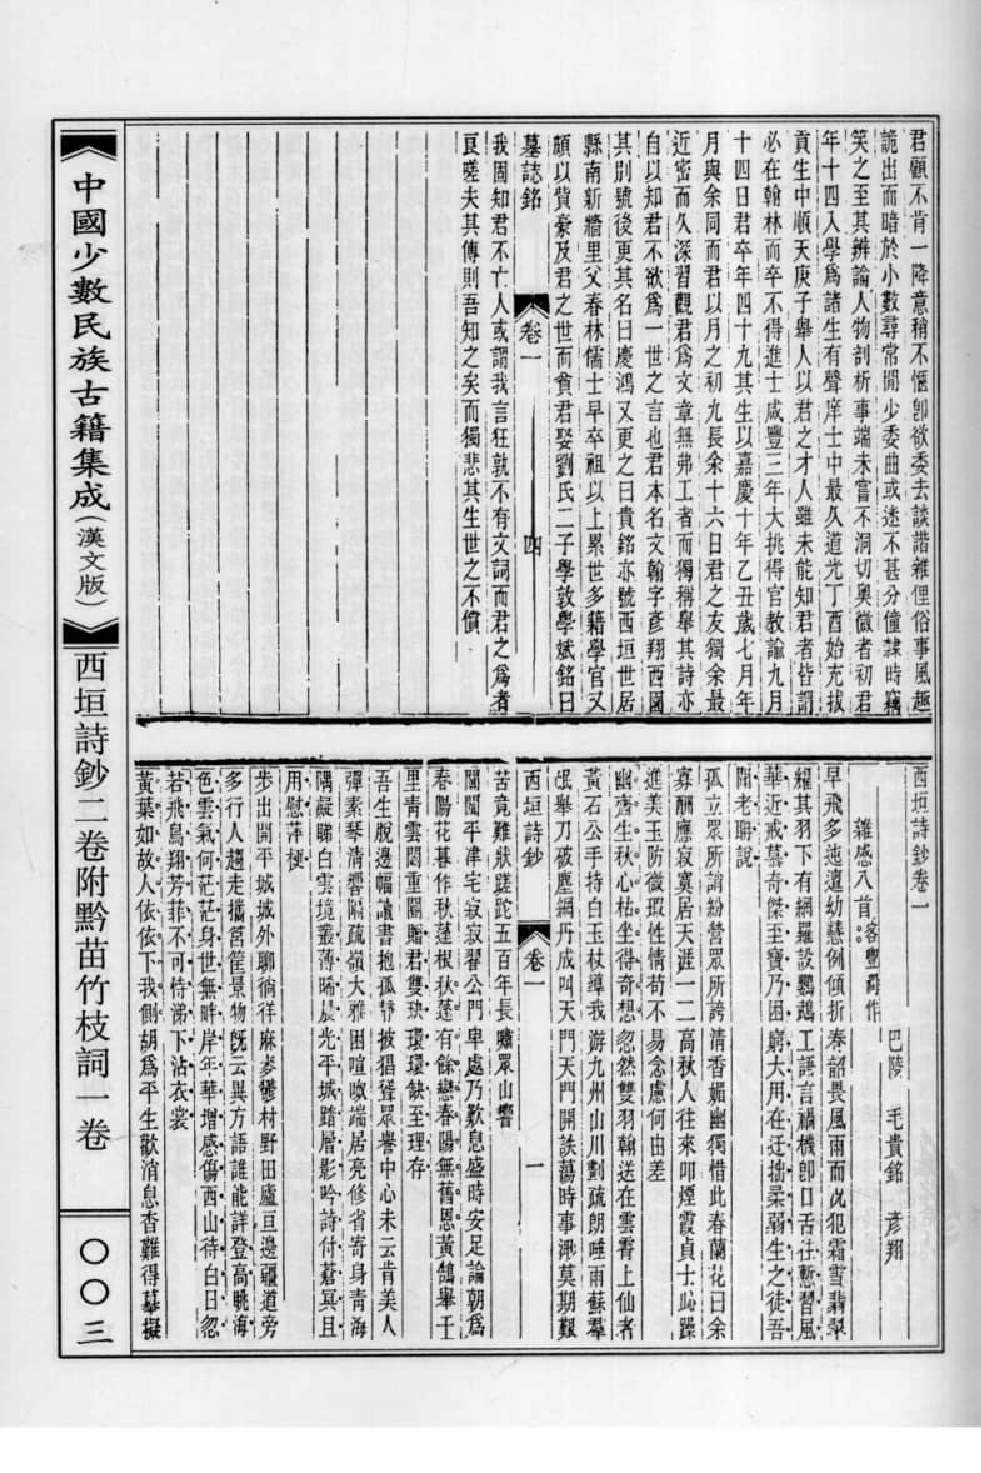 君顧不肯一降意稍不愜卽欲委去談諧雜俚俗事風趣
詭出而暗於小數尋常閒少委曲或迷不甚分僮隸時竊
笑之至其辨論人物剖析事端未嘗不洞切奧微者初君
年十四入學爲諸生有聲庠士中最久道光丁酉始充拔
貢生中順天庚子舉人以君之才人雖未能知君者皆謂
必在翰林而卒不得進士咸豐三年大挑得官教諭九月
十四日君卒年四十九其生以嘉慶十年乙丑歲七月年
月與余同而君以月之初九長余十六日君之友獨余最
近密而久深習觀君爲文章無弗工者而獨稱舉其詩亦
自以知君不欲爲一世之言也君本名文翰字彥翔西園
其別號後更其名曰慶鴻又更之曰貴銘亦號西垣世居
縣南新牆里父春林儒士早卒祖以上累世多籍學官又
頗以貲豪及君之世而貧君娶劉氏二子學敦學斌銘曰
墓誌銘 卷一 四
我固知君不亡人或謂我言狂孰不有文詞而君之爲者
夐嗟夫其傳則吾知之矣而獨悲其生世之不償
西垣詩鈔卷一
巴陵 毛貴銘 彥翔
雜感八首客豐潤作
早飛多迍邅幼慧例傾折春韶畏風雨而况犯霜雪翡翠
耀其羽下有網羅設鸚鵡工語言禍機卽口舌往慙習風
華近戒慕奇傑至寶乃困窮大用在迂拙柔弱生之徒吾
聞老聃說
孤立眾所誚紛營眾所誇清香媚幽獨惜此春蘭花日余
寡酬應寂寞居天涯一二高秋人往來叩煙霞貞士恥躁
進美玉防微瑕性情苟不易念慮何由差
幽齋生秋心枯坐得奇想忽然雙羽翰送在雲霄上仙者
黃石公手持白玉杖導我游九州山川劃疏朗睡雨蘇羣
氓舉刀破塵網丹成叫天門天門開詄蕩時事渺莫期艱
西垣詩鈔 卷一 一
苦竟難狀蹉跎五百年長嘯眾山響
閶闔平津宅寂寂翟公門卑處乃歎息盛時安足論朝爲
春陽花暮作秋蓬根秋蓬有餘戀春陽無舊恩黃鵠舉千
里青雲閟重關贈君雙玦環環缺至理存
吾生脫邊幅讀書抱孤靜被猖聳眾譽中心未云肯美人
彈素琴清響隔疏嶺大雅困喧啾端居亮修省寄身青海
隅凝睇白雲境叢薄晞晨光平城踏層影吟詩付蒼冥且
用慰萍梗
步出開平城城外聊徜徉麻麥鬱村野田廬亘邊疆道旁
多行人趨走攜筥筐景物旣云異方語誰能詳登高眺海
色雲氣何茫茫身世無畔岸年華增感傷西山待白日忽
若飛鳥翔芳菲不可恃涕下沾衣裳
黃葉如故人依依下我側胡爲平生歡消息杳難得摹擬
中國少數民族古籍集成（漢文版）
西垣詩鈔二卷附黔苗竹枝詞一卷
〇〇三